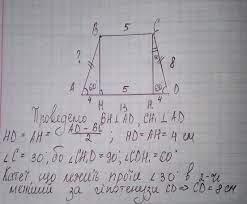 B 5 C
?
8
A 60 60 D
4 H 5 H₁ 4
13
Проведемо BH⊥AD, CH₁⊥AD
HD = AH = AD-BC/2; HD = AH = 4 см
∠C = 30°, бо ∠CH₁D = 90°, ∠CDH₁ = 60°
Катет, що лежить проти ∠30° в 2-чі
менший за гіпотенузу CD ⇒ CD = 8 см